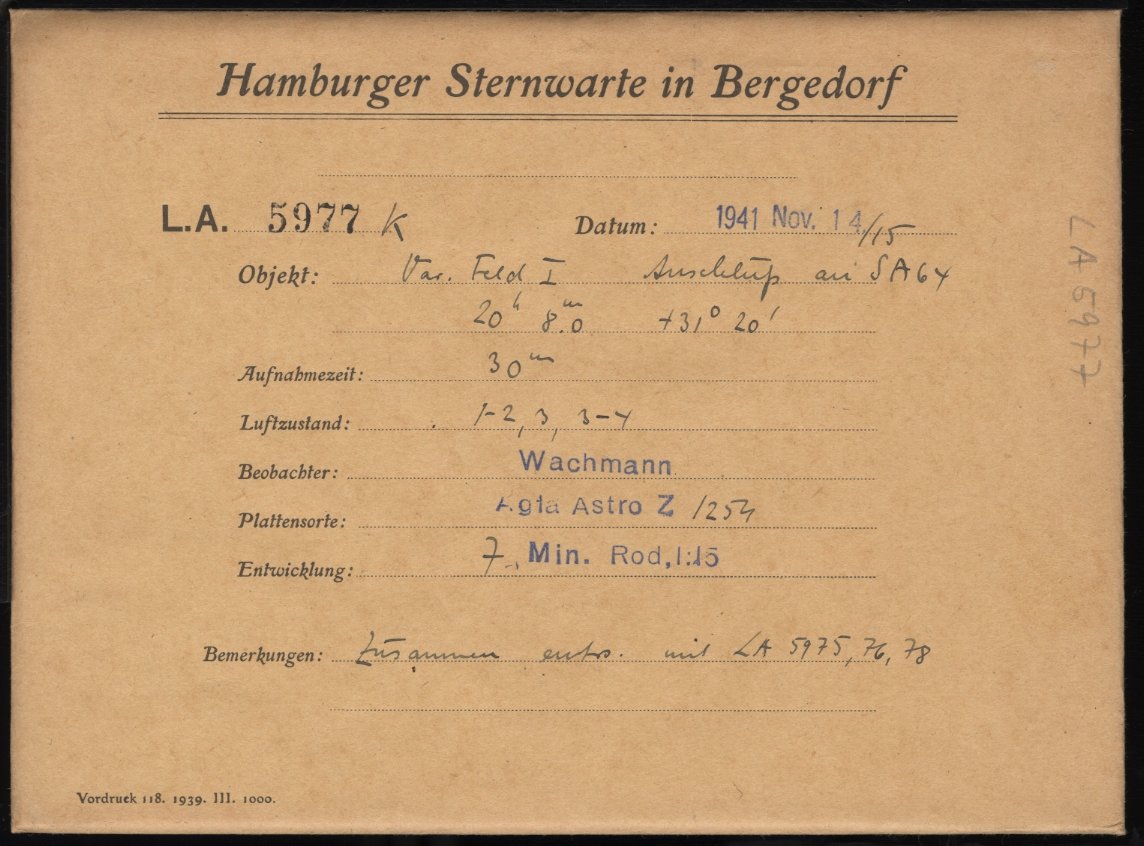 Hamburger Sternwarte in Bergedorf
L.A. 5977 K Datum: 1941 Nov. 14/15
Objekt: Var. Feld I Anschluß an SA 64
20h 8m.0 +31° 20'
Aufnahmezeit: 30m
Luftzustand: 1-2, 3, 3-4
Beobachter: Wachmann
Plattensorte: Agfa Astro Z 1254
Entwicklung: 7 Min. Rod, 1:15
Bemerkungen: Zusammen entw. mit LA 5975, 76, 78
Vordruck 118. 1939. III. 1000.
LA 5977